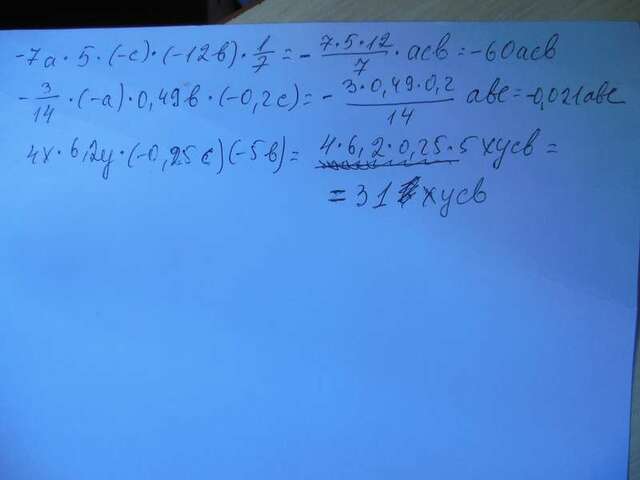 -7a·5·(-c)·(-12b)·1/7 = - 7·5·12/7 · acb = -60acb
- 3/14 ·(-a)·0,49b·(-0,2c) = - 3·0,49·0,2/14 abc = -0,021abc
4x·6,2y·(-0,25c)(-5b) = 4·6,2·0,25·5xycb =
= 31 xycb